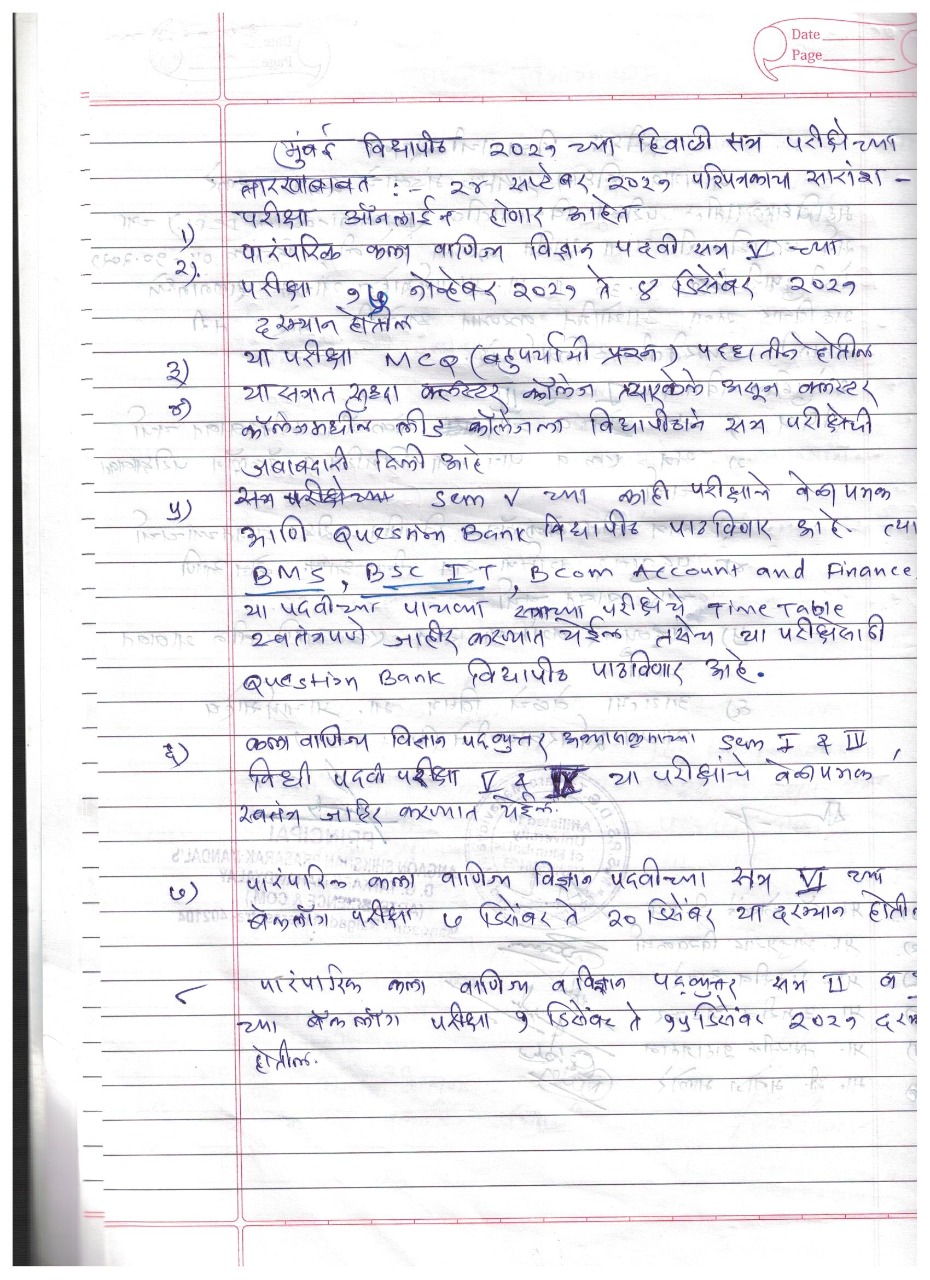 Date
Page
(मुंबई विद्यापीठ २०२१ च्या हिवाळी सत्र परीक्षेच्या
तारखांबाबत :- २४ सप्टेंबर २०२१ परिपत्रकाचा सारांश -
१) परीक्षा ऑनलाईन होणार आहेत
२). पारंपरिक कला वाणिज्य विज्ञान पदवी सत्र V च्या
परीक्षा १७ नोव्हेंबर २०२१ ते ४ डिसेंबर २०२१
दरम्यान होतील
३) या परीक्षा MCQ (बहुपर्यायी प्रश्न) पद्धतीने होतील
४) या सत्रात सुध्दा क्लस्टर कॉलेज तयारकेले असून क्लस्टर
कॉलेजमधील लीड कॉलेजला विद्यापीठाने सत्र परीक्षेची
जबाबदारी दिली आहे
५) सत्र परीक्षेच्या Sem V च्या काही परीक्षाचे वेळापत्रक
आणि Question Bank विद्यापीठ पाठविणार आहे. त्या
BMS, BSC IT, BCom Account and Finance
या पदवीच्या पाचव्या सत्राच्या परीक्षेचे Time Table
स्वतंत्रपणे जाहीर करण्यात येईल तसेच या परीक्षेसाठी
Question Bank विद्यापीठ पाठविणार आहे.
६) कला वाणिज्य विज्ञान पदव्युत्तर अभ्यासक्रमाच्या Sem I & III,
विधी पदवी परीक्षा V & IX या परीक्षांचे वेळापत्रक
स्वतंत्र जाहिर करण्यात येईल.
७) पारंपारिक कला वाणिज्य विज्ञान पदवीच्या सत्र VI च्या
बॅकलॉग परीक्षा ७ डिसेंबर ते २० डिसेंबर या दरम्यान होतील
८ पारंपारिक कला वाणिज्य व विज्ञान पदव्युत्तर सत्र II व
च्या बॅकलॉग परीक्षा १ डिसेंबर ते १५ डिसेंबर २०२१ दरम
होतील.